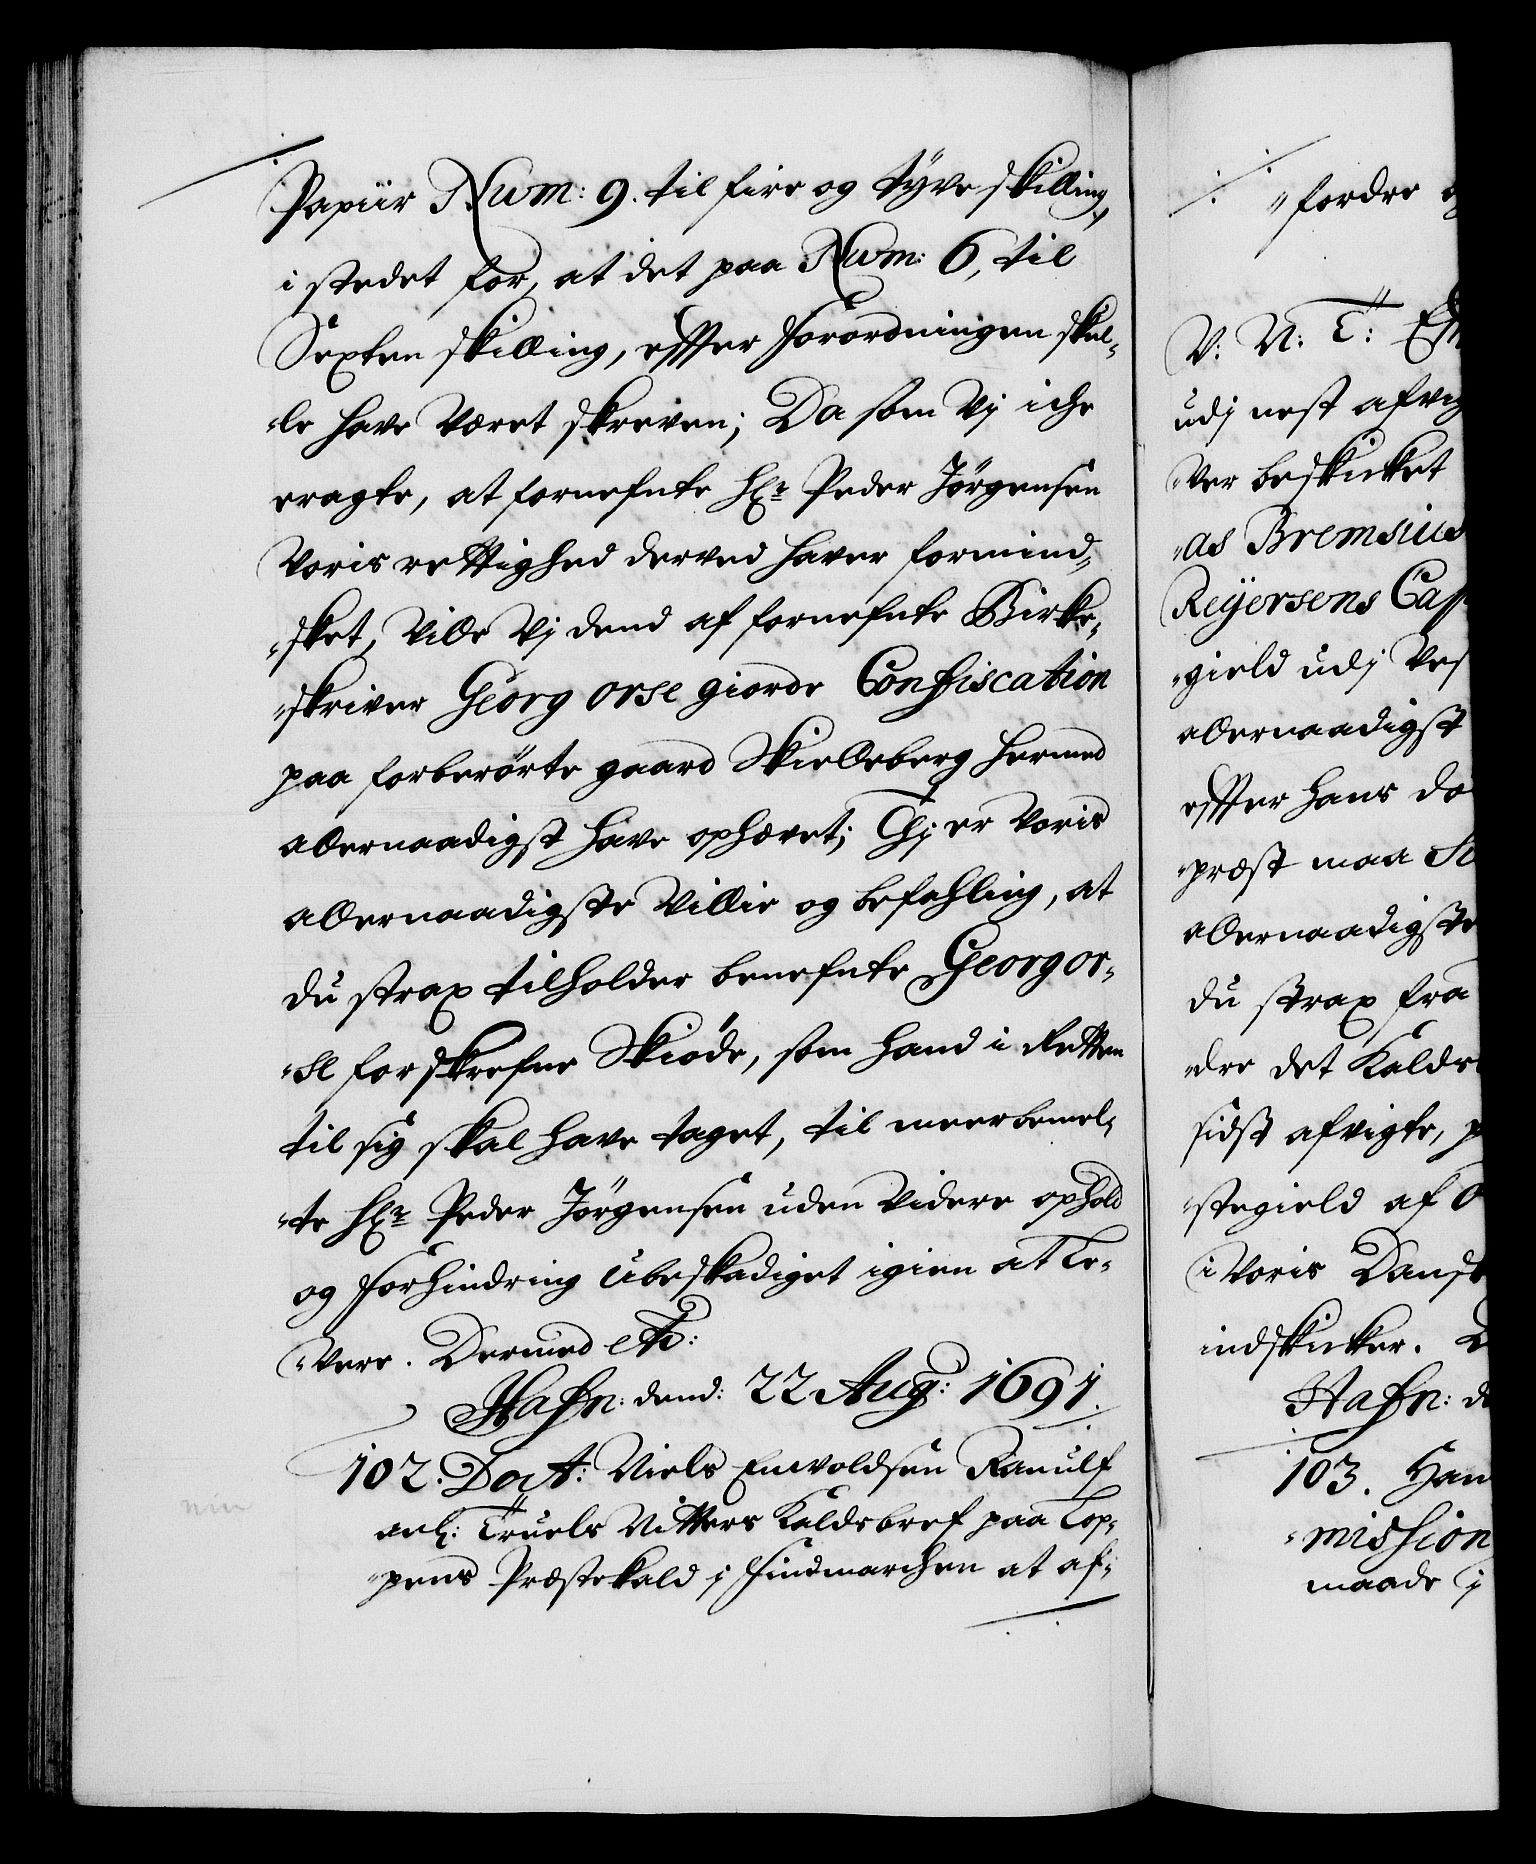 Papiir Num: 9. til fire og tÿve skilling,
i stedet for, at det paa Num: 6, til
Sexten skilling, effter Forordningen skul-
-le have Været skreven; Da som Vj iche
eragte, at fornefnte Hr: Peder Jörgensen
Voris rettighed derved haver formind-
-sket, Ville Vj dend af fornefnte Birke-
-skriver Georg Orse giorde Confiscation
paa forberörte gaard Skielleberg hermed
allernaadigst have ophævet; Thj er Voris
allernaadigste Villie og befahling, at
du strax tilholder benefnte Georg Or-
-se forskrefne Skiöde, som hand i Retten
til sig skal have taget, til meerbemel-
-te Hr: Peder Jörgensen uden Videre ophold
og forhindring Ubeskadiget igien at Le-
-vere. Dermed etc:
Hafn: dend: 22 Aug: 1691.
102. Doct: Niels Enwoldsen Ranulf
anl: Truels Nitters Kaldsbref paa Lop-
-pens Præstekald j Findmarchen at af-
"fordre
V: N: T:
udj nest afvig
-ver beskicket
-as Bremsius
Reÿersens Cap
-gield udj Ves
allernaadigst
effter hans dö
-præst maa
allernaadigste
du strax fra
-dre det Kalds
sidst afvigte,
-stegield af
i Voris Dansk
indskicker.
Hafn: d
103. Han
-mission
maade j